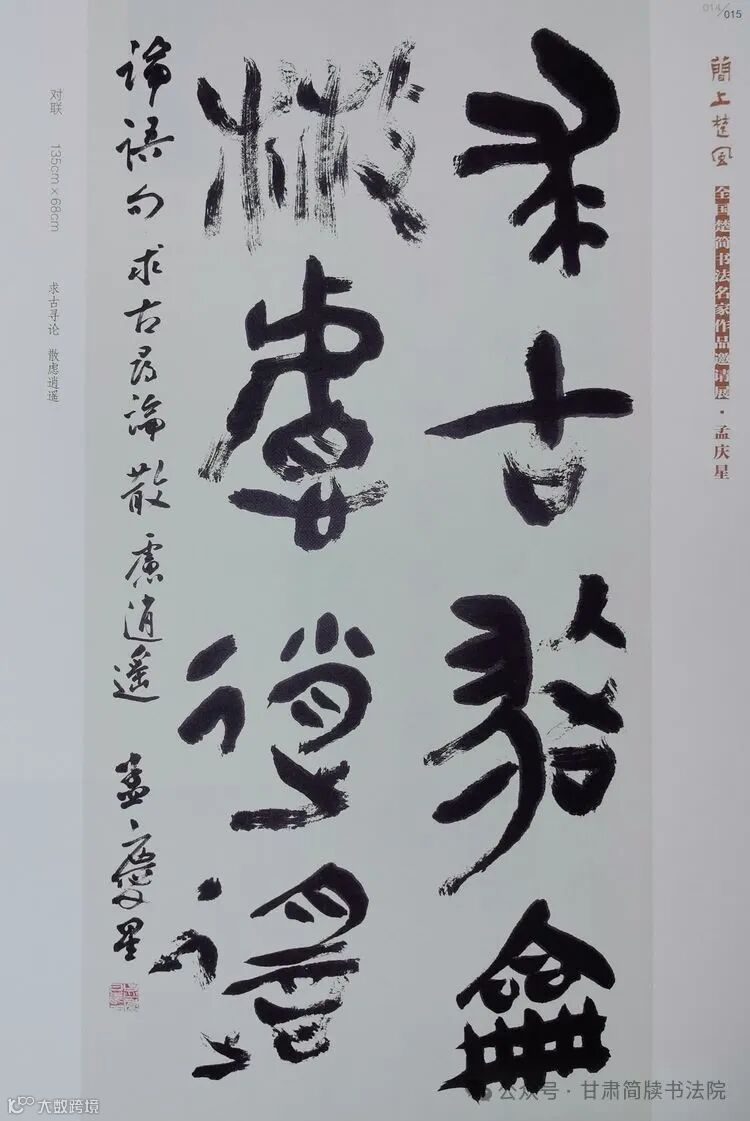 014/015
简上楚风
全国楚简书法名家作品邀请展·孟庆星
求古寻论
散虑逍遥
論語句求古尋論散慮逍遥
孟慶星
对联 135cm×68cm 求古寻论 散虑逍遥
公众号·甘肃简牍书法院
大数跨境